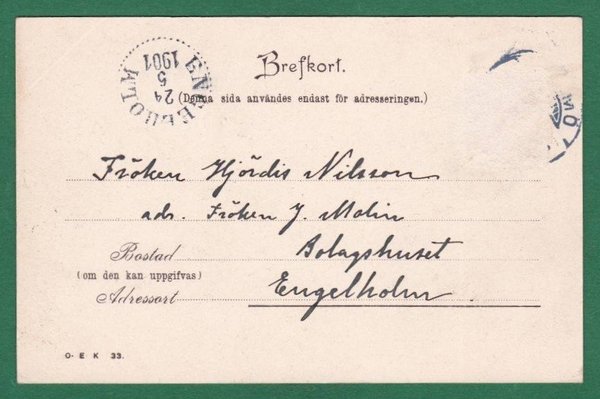 Brefkort.
(Denna sida användes endast för adresseringen.)
ENGELHOLM
24
5
1901
MÖ
Fröken Hjördis Nilsson
adr. Fröken J. Malin
Bolagshuset
Bostad
(om den kan uppgifvas)
Engelholm
Adressort
O. E K 33.